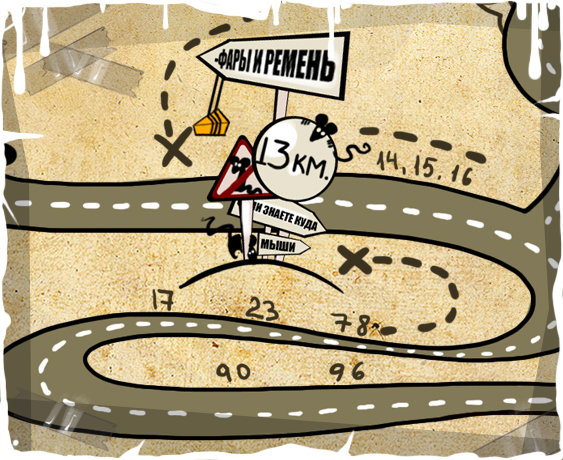 -ФАРЫ И РЕМЕНЬ
13 КМ.
14, 15. 16
И ЗНАЕТЕ КУДА
МЫШИ
17
23
78
90
96